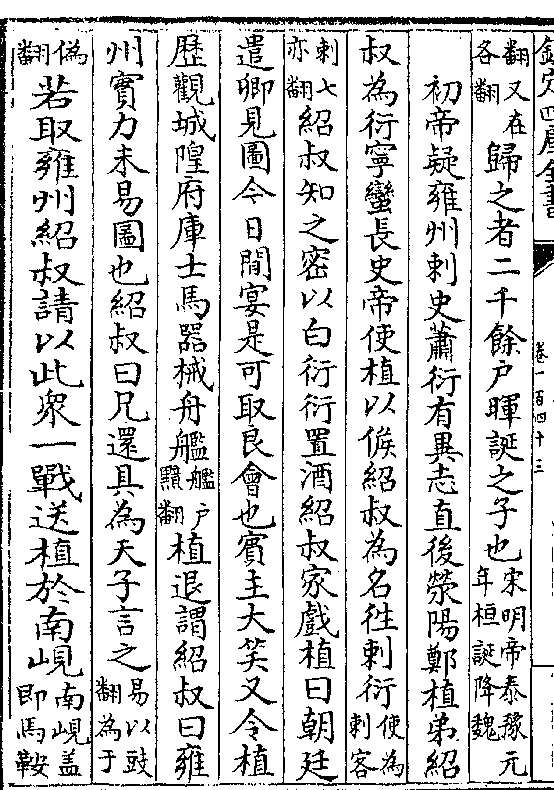 欽定四庫全書
卷一百四十三
翻又在各翻歸之者二千餘戶暉誕之子也宋明帝泰豫元年桓誕降魏
初帝疑雍州刺史蕭衍有異志直後滎陽鄭植弟紹
叔為衍寧蠻長史帝使植以候紹叔為名徃刺衍使為刺客
刺七亦翻紹叔知之密以白衍衍置酒紹叔家戲植曰朝廷
遣卿見圖今日閒宴是可取良會也賓主大笑又令植
歷觀城隍府庫士馬器械舟艦艦户黤翻植退謂紹叔曰雍
州實力未易圖也紹叔曰兄還具為天子言之易以豉翻為于
偽翻若取雍州紹叔請以此衆一戰送植於南峴南峴蓋即馬鞍